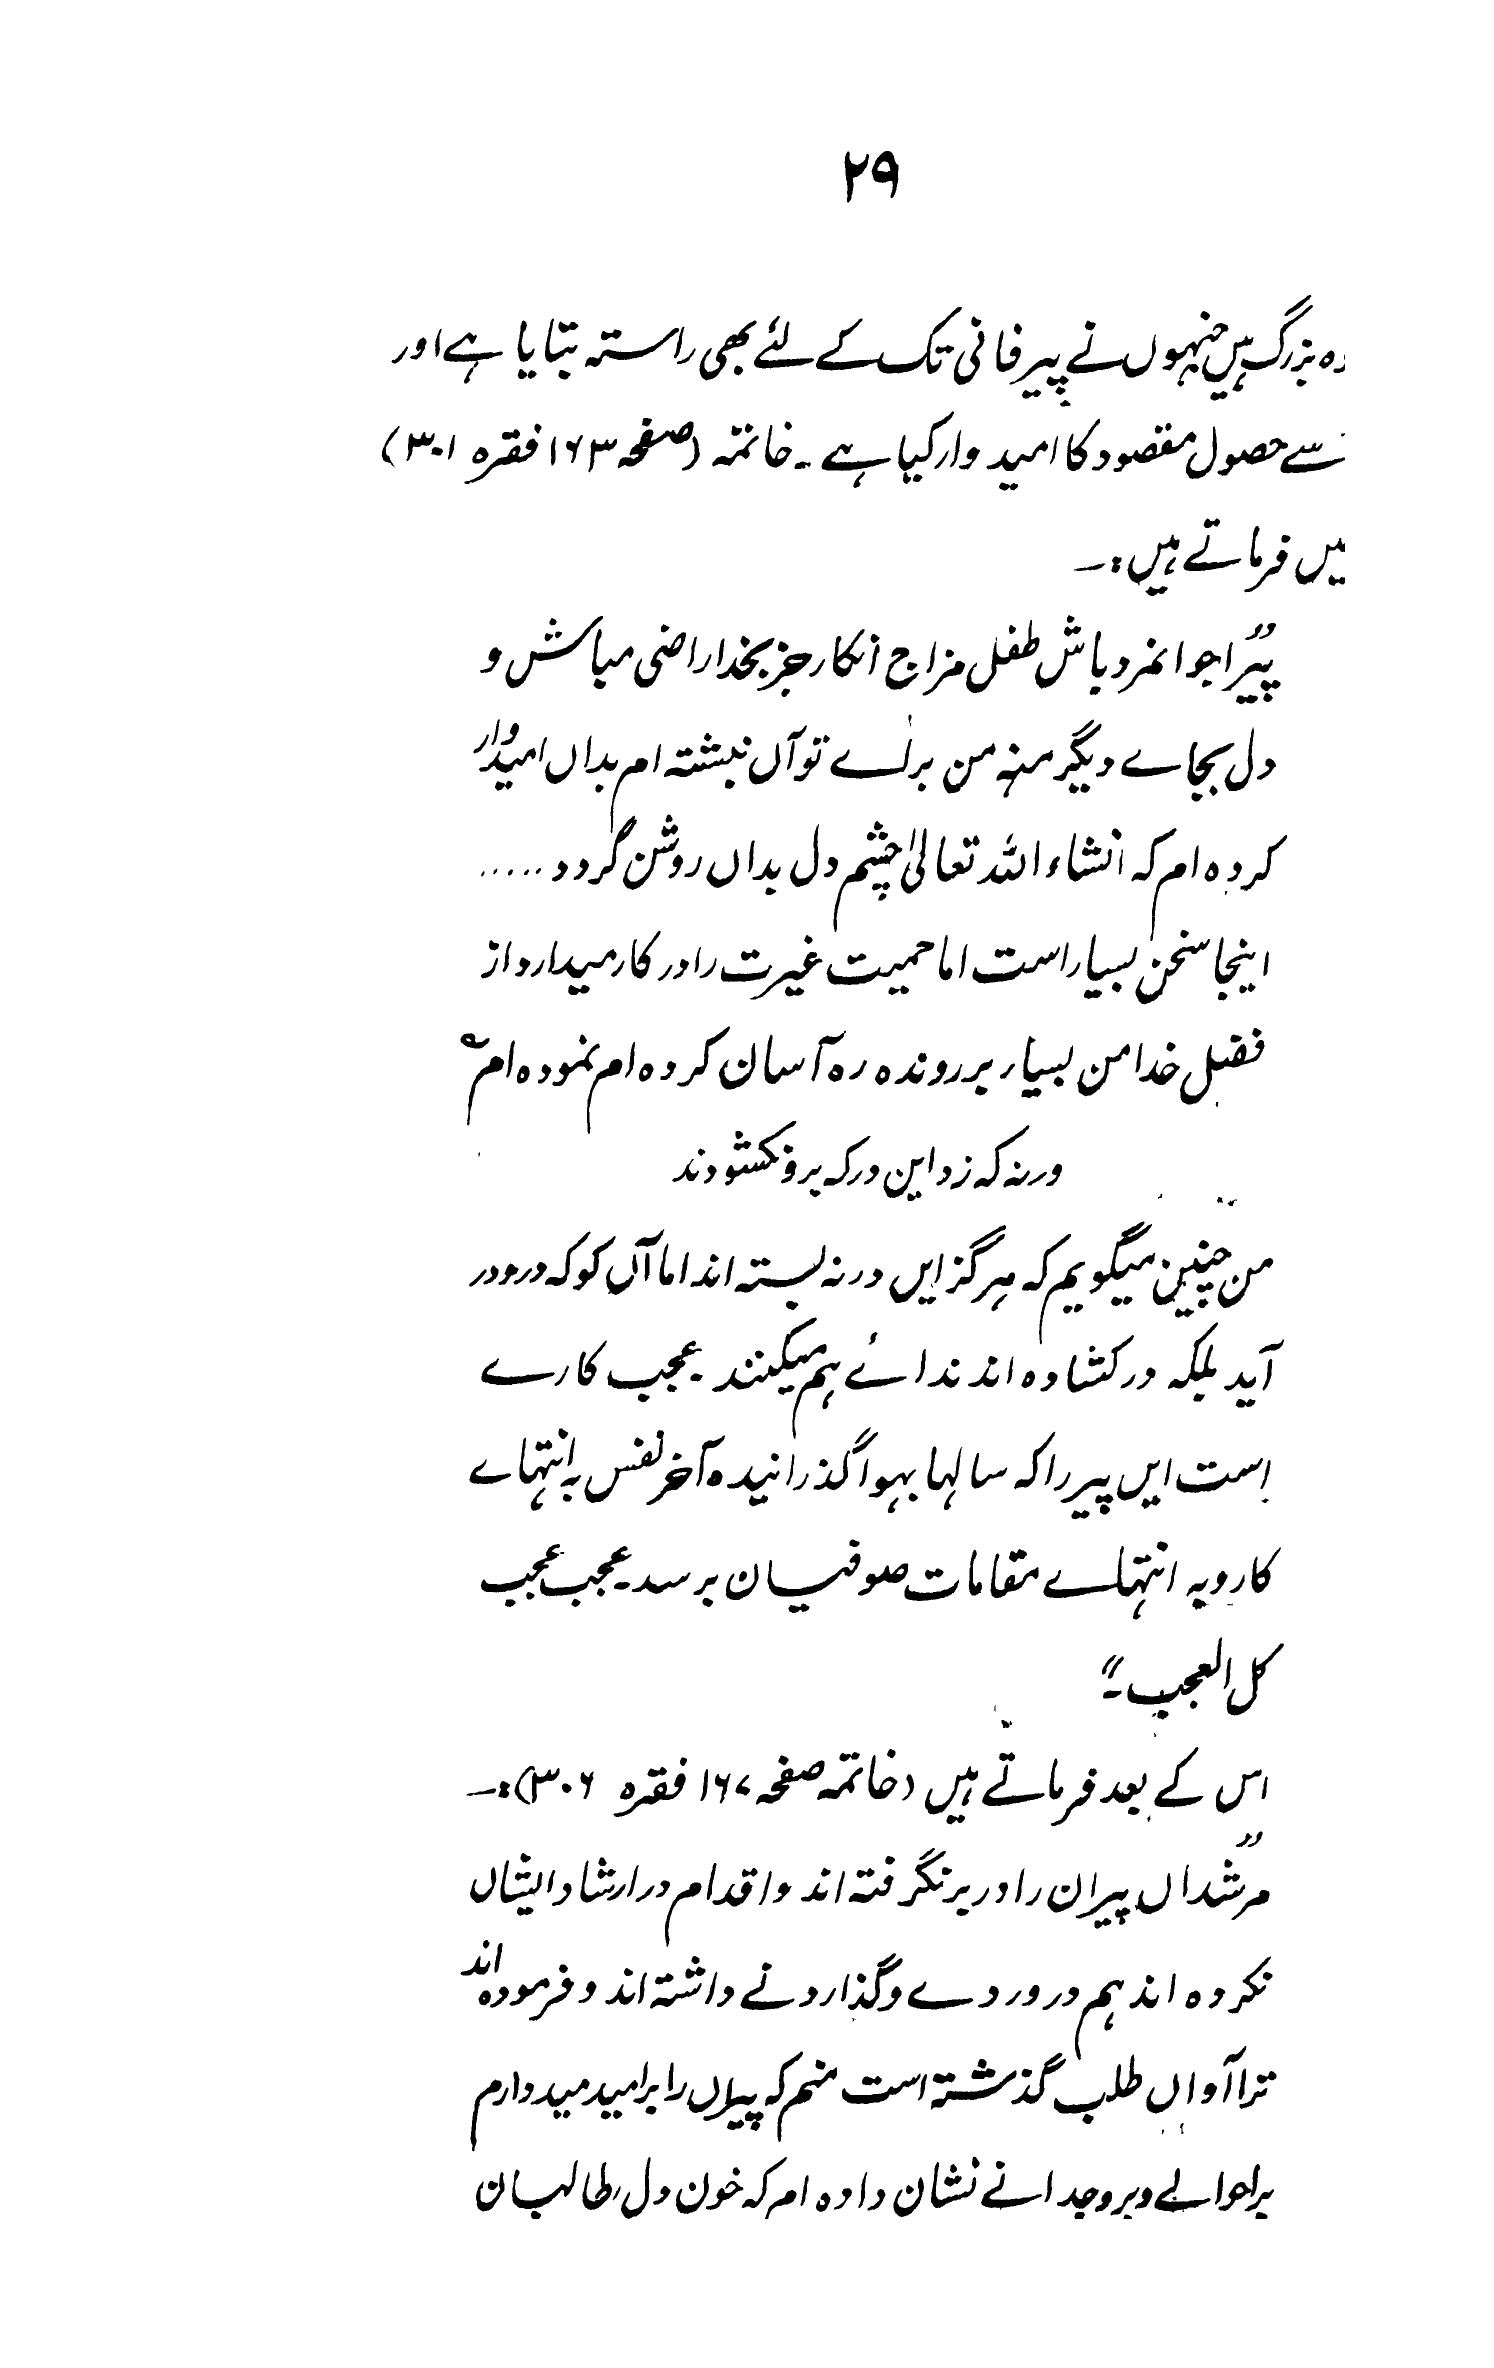 ۲۹
وہ بزرگ ہیں جنہوں نے پیر فانی تک کے لئے بھی راستہ بتایا ہے اور
سے حصول مقصود کا امید وار کیا ہے ۔ خاتمہ (صفحہ ۱۶۳ فقرہ ۳۰۱)
میں فرماتے ہیں :۔
"پیرا جوانمرد باش طفل مزاج انکار جز بخدا راضی مباش و
دل بجاے دیگر منہ من براے تو آں نبشتہ ام بداں امیدوار
کردہ ام کہ انشاء اللہ تعالیٰ چشم دل بداں روشن گردد .....
اینجا سخن بسیار است اما حمیت غیرت را در کار میدارد از
فضل خدا من بسیار بر روندہ رہ آسان کردہ ام نمودہ ام ؎
ورنہ کہ زد این در کہ برو نکشودند
من چنین میگویم کہ ہرگز ایں در نہ بستہ اند اما آں کو کہ درو در
آید بلکہ در کشادہ اند ندائے ہم میکنند ۔ عجب کارے
است ایں پیر را کہ سالہا بہوا گذرانیدہ آخر نفس بہ انتہاے
کار و بہ انتہاے مقامات صوفیان برسد ۔ عجب عجب
کل العجب ۔"
اس کے بعد فرماتے ہیں (خاتمہ صفحہ ۱۶۷ فقرہ ۳۰۶) :۔
"مرشداں پیران را در بر نگرفتہ اند و اقدام در ارشاد ایشاں
نکردہ اند ہم در وردے و گذاردنے داشتہ اند و فرمودہ اند
ترا آواں طلب گذشتہ است منم کہ پیراں را بر امید میدارم
برا ہوابے و بر وجدانے نشان دادہ ام کہ خون دل طالبان